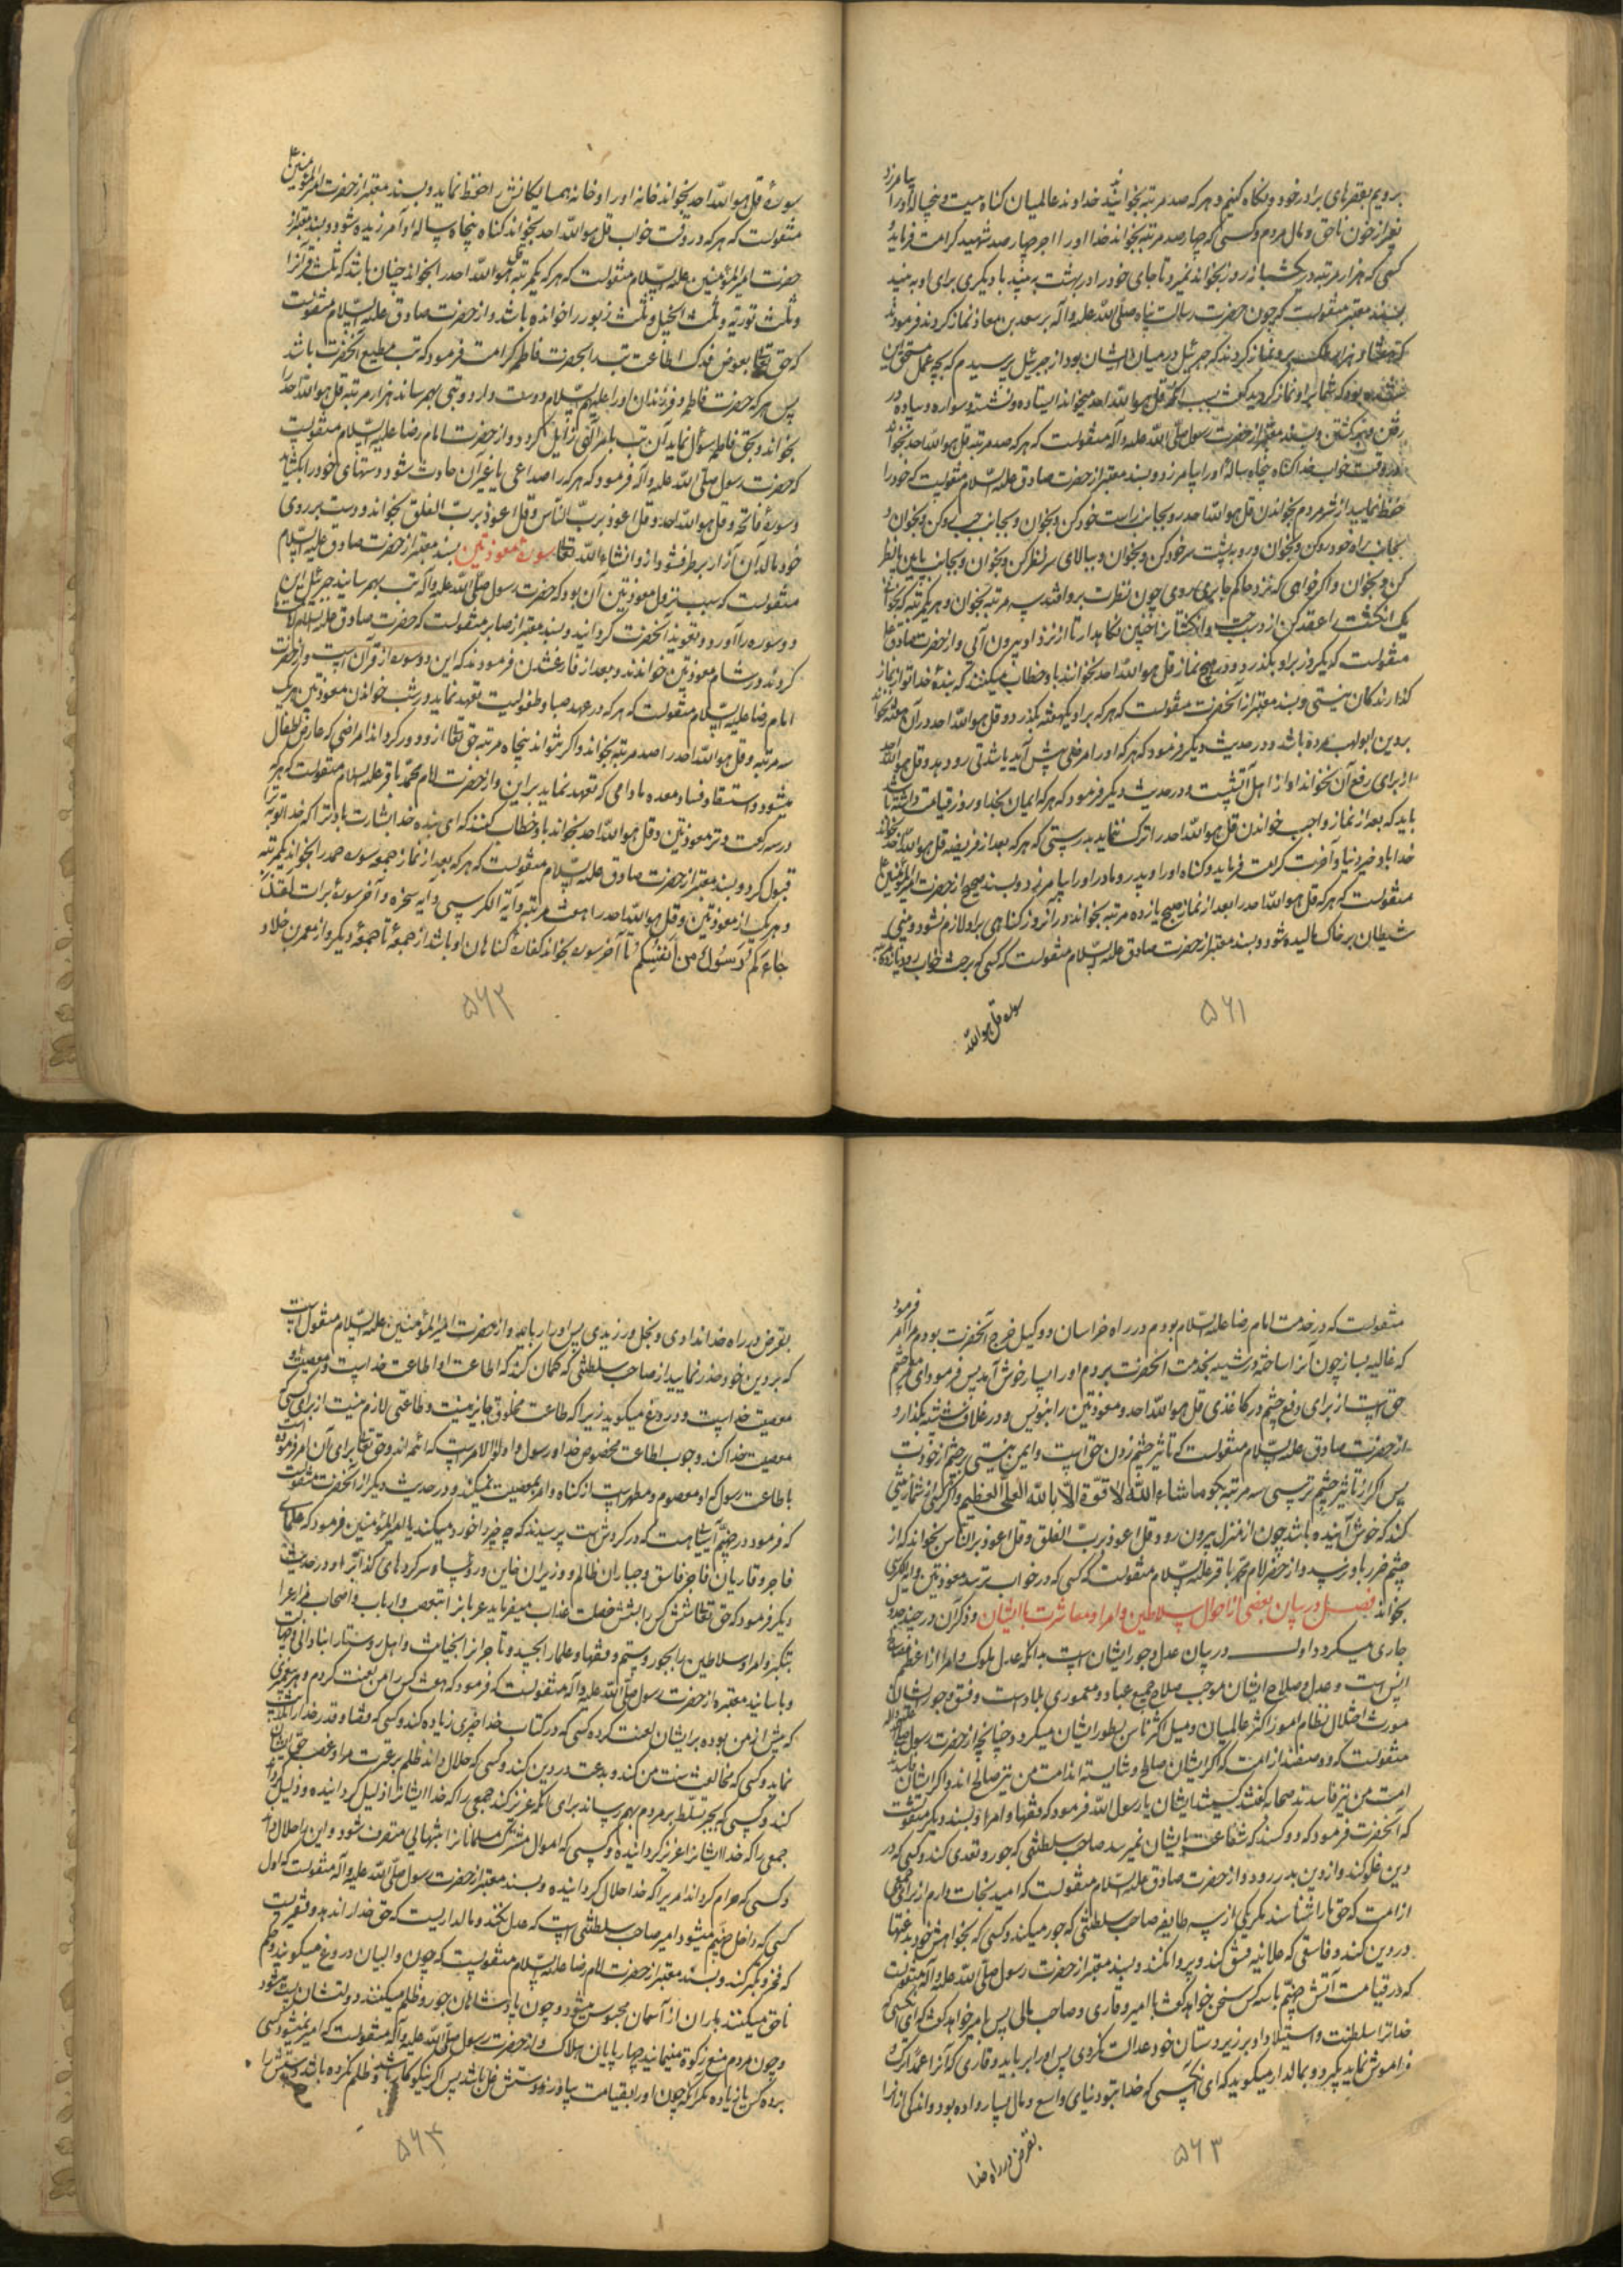 برویم بقصرهای برادر خود و نگاه کنیم و هر که صد مرتبه بخواند خداوند عالمیان گناه بیست و پنجساله او را بیامرزد
بغیر از خون ناحق و مال مردم و کسی که چهار صد مرتبه بخواند خدا او را اجر چهار صد شهید کرامت فرماید و
کسی که هزار مرتبه در یکشبانه روز بخواند نمیرد تا جای خود را در بهشت به بیند یا دیگری برای او به بیند
بسند معتبر منقولست که چون حضرت رسالت پناه صلی الله علیه و آله بر سعد بن معاذ نماز کردند فرمودند
که هفتاد هزار ملک برو نماز کردند که جبرئیل در میان ایشان بود از جبرئیل پرسیدم که بچه عمل مستحق این
شده بود که شما بر او نماز کردید گفت بسبب آنکه قل هو الله احد میخواند ایستاده و نشسته و سواره و پیاده و در
رفتن و برگشتن و بسند معتبر از حضرت رسول صلی الله علیه و آله منقولست که هر که صد مرتبه قل هو الله احد بخواند
در وقت خواب خدا گناه پنجاه ساله او را بیامرزد و بسند معتبر از حضرت صادق علیه السلام منقولست که خود را
حفظ نمایید از شر مردم بخواندن قل هو الله احد رو بجانب راست خود کن و بخوان و بجانب چپ رو کن و بخوان و
بجانب راه خود رو کن و بخوان و رو به پشت سر خود کن و بخوان و ببالای سر نظر کن و بخوان و بجانب پایین نظر
کن و بخوان و اگر خواهی که نزد حاکم جابری روی چون نظرت برو افتد سه مرتبه بخوان و هر یکمرتبه که بخوانی
یک انگشت را عقد کن از دست چپ و انگشتان را چنین نگاهدار تا از نزد او بیرون آئی و از حضرت صادق ع
منقولست که یکروز بر او بگذرد و در هیچ نماز قل هو الله احد نخواند باو خطاب میکنند که بنده خدا تو از نماز
گذارندگان نیستی و بسند معتبر از آنحضرت منقولست که هر که بر او یکهفته بگذرد و قل هو الله احد در آن هفته نخواند
بردین ابولهب مرده باشد و در حدیث دیگر فرمود که هر که او را مرضی پیش آید یا شدتی رو دهد و قل هو الله احد
را برای رفع آن نخواند او از اهل آتشست و در حدیث دیگر فرمود که هر که ایمان بخدا و روز قیامت داشته باشد
باید که بعد از نماز واجب خواندن قل هو الله احد را ترک ننماید بدرستی که هر که بعد از فریضه قل هو الله احد بخواند
خدا باو خیر دنیا و آخرت کرامت فرماید و گناه او را و پدر و مادر او را بیامرزد و بسند صحیح از حضرت امیر المؤمنین ع
منقولست که هر که قل هو الله احد را بعد از نماز صبح یازده مرتبه بخواند در آنروز گناهی بر او لازم نشود و بینی
شیطان بر خاک مالیده شود و بسند معتبر از حضرت صادق علیه السلام منقولست که کسی که برخت خواب رود یازده مرتبه
سوره قل هو الله
۵۶۱
سوره قل هو الله احد بخواند خانه او را و خانه همسایگانش را حفظ نماید و بسند معتبر از حضرت امیر المؤمنین ع
منقولست که هر که در وقت خواب قل هو الله احد بخواند گناه پنجاه ساله او آمرزیده شود و بسند معتبر از
حضرت امیر المؤمنین علیه السلام منقولست که هر که یکمرتبه قل هو الله احد را بخواند چنان باشد که ثلث قرآن را
و ثلث توریة و ثلث انجیل و ثلث زبور را خوانده باشد و از حضرت صادق علیه السلام منقولست
که حق تعالی بعوض فدک اطاعت تب را بحضرت فاطمه کرامت فرمود که تب مطیع آنحضرت باشد
پس هر که حضرت فاطمه و فرزندان او را علیهم السلام دوست دارد و تبی بهم رساند هزار مرتبه قل هو الله احد را
بخواند و بحق فاطمه سؤال نماید آن تب بامر الهی زایل گردد و از حضرت امام رضا علیه السلام منقولست
که حضرت رسول صلی الله علیه و آله فرمود که هر که را صداعی یا غیر آن حادث شود دستهای خود را بگشاید
و سوره فاتحه و قل هو الله احد و قل اعوذ برب الناس و قل اعوذ برب الفلق بخواند و دست بر روی
خود مالد آن آزار برطرف شود از او انشاء الله تعالی سوره معوذتین بسند معتبر از حضرت صادق علیه السلام
منقولست که سبب نزول معوذتین آن بود که حضرت رسول صلی الله علیه و آله تب بهم رسانید جبرئیل این
دو سوره را آورد و تعویذ آنحضرت گردانید و بسند معتبر از صابر منقولست که حضرت صادق علیه السلام امامت
کردند و در شام معوذتین خواندند و بعد از فارغ شدن فرمودند که این دو سوره از قرآن است و از حضرت
امام رضا علیه السلام منقولست که هر که در عهد صبا و طفولیت تعهد نماید در شب خواندن معوذتین هر یک
سه مرتبه و قل هو الله احد را صد مرتبه بخواند و اگر نتواند پنجاه مرتبه حق تعالی ازو دور گرداند امراضی که عارض اطفال
میشود و استسقا و فساد معده مادامی که تعهد نماید بر این و از حضرت امام محمد باقر علیه السلام منقولست که هر که
در سه رکعت وتر معوذتین و قل هو الله احد بخواند باو خطاب کنند که ای بنده خدا بشارت باد ترا که خدا وتر ترا
قبول کرد و بسند معتبر از حضرت صادق علیه السلام منقولست که هر که بعد از نماز جمعه سوره حمد را بخواند یکمرتبه
و هر یک از معوذتین و قل هو الله احد را هفت مرتبه و آیة الکرسی و آیه سخره و آخر سوره برات لقد
جاءکم رسول من انفسکم تا آخر سوره بخواند کفاره گناهان او باشد از جمعه تا جمعه دیگر و از معمر بن خلاد
۵۶۲
منقولست که در خدمت امام رضا علیه السلام بودم در راه خراسان و وکیل خرج آنحضرت بودم مرا امر فرمود
که غالیه بساز چون آنرا ساختم و در شیشه بخدمت آنحضرت بردم او را بسیار خوش آمد پس فرمود ای معمر چشم
حق است از برای دفع چشم در کاغذی قل هو الله احد و معوذتین را بنویس و در غلاف شیشه بگذار و
از حضرت صادق علیه السلام منقولست که تاثیر چشم زدن حق است و ایمن نیستی بر چشم از خودت
پس اگر از تاثیر چشم ترسی سه مرتبه بگو ماشاء الله لا قوة الا بالله العلی العظیم و اگر کسی از شما زینتی
کند که خوش آینده باشد چون از منزل بیرون رود قل اعوذ برب الفلق و قل اعوذ برب الناس بخواند که از
چشم ضرر باو نرسد و از حضرت امام محمد باقر علیه السلام منقولست که کسی که در خواب ترسد معوذتین و آیة الکرسی
بخواند فصل در بیان بعضی از احوال سلاطین و امرا و معاشرت با ایشان و ذکر آن در چند جدول
جاری میگردد اول در بیان عدل و جور ایشان است بدانکه عدل ملوک و امرا از اعظم مصالح
ناس است و عدل و صلاح ایشان موجب صلاح جمیع عباد و معموری بلاد است و فسق و جور ایشان
مورث اختلال نظام امور اکثر عالمیان و میل اکثر ناس بطور ایشان میگردد چنانچه از حضرت رسول صلی الله علیه و آله
منقولست که دو صنفند از امت من که اگر ایشان صالح و شایسته اند امت من نیز صالح اند و اگر ایشان فاسدند
امت من نیز فاسدند صحابه گفتند کیستند ایشان یا رسول الله فرمود که فقها و امرا و بسند دیگر منقولست
که آنحضرت فرمود که دو کسند که شفاعت من بایشان نمیرسد صاحب سلطنتی که جور و تعدی کند و کسی که در
دین غلو کند و از دین بدر رود و از حضرت صادق علیه السلام منقولست که امید نجات دارم از برای جمعی
از امت که حق ما را شناسند مگر یکی از سه طایفه صاحب سلطنتی که جور میکند و کسی که بخواهش خود بدعتها
در دین کند و فاسقی که علانیه فسق کند و پروا نکند و بسند معتبر از حضرت رسول صلی الله علیه و آله منقولست
که در قیامت آتش جهنم با سه کس سخن خواهد گفت با امیر و قاری و صاحب مالی پس بامیر خواهد گفت که ای آنکسی که
خدا ترا سلطنت و استیلا داد بر زیردستان خود عدالت نکردی پس او را برباید و قاری که آنرا عمدا ترک و
فراموش نماید بگیرد و بمالدار میگوید که ای آنکسی که خدا بتو دنیای واسع و مال بسیار داده بود و اندکی از آنرا
بقرض در راه خدا
۵۶۳
بقرض در راه خدا ندادی و بخل ورزیدی پس او را برباید و از حضرت امیر المؤمنین علیه السلام منقول است
که بر دین خود حذر نمایید از صاحب سلطنتی که گمان کند که اطاعت او اطاعت خداست و معصیت او
معصیت خداست و دروغ میگوید زیرا که طاعت مخلوق جایز نیست و طاعتی لازم نیست از برای کسی که
معصیت خدا کند وجوب اطاعت مخصوص خدا و رسول و اولوا الامر است که ائمه اند و حق تعالی برای آن امر فرموده است
باطاعت رسول که او معصوم و مطهر است از گناه و امر بمعصیت نمیکند و در حدیث دیگر از آنحضرت منقولست
که فرمود در جهنم آسیائی است که در گردش است پرسیدند که چه چیز را خورد میکند یا امیر المؤمنین فرمود که علمای
فاجر و قاریان فاجر فاسق و جباران ظالم و وزیران خاین و رؤسا و سرکرده های کذاب را و در حدیث
دیگر فرمود که حق تعالی شش کس را بشش خصلت عذاب میفرماید عربان را بتعصب و ارباب و اصحاب مزارع را
بتکبر و امرا و سلاطین را بجور و ستم و فقها و علما را بحسد و تاجران را بخیانت و اهل روستا را بنادانی و جهالت
و باسانید معتبره از حضرت رسول صلی الله علیه و آله منقولست که فرمود که هفت کس را من لعنت کردم و هر پیغمبری
که پیش از من بوده بر ایشان لعنت کرده کسی که در کتاب خدا چیزی زیاده کند و کسی که قضا و قدر خدا را تکذیب
نماید و کسی که مخالفت سنت من کند و بدعت در دین کند و کسی که حلال داند ظلم بر عترت مرا و غصب حق ایشان
کند و کسی که بجبر تسلط بر مردم بهم رساند برای آنکه عزیز کند جمعی را که خدا ایشان را ذلیل گردانیده و ذلیل گرداند
جمعی را که خدا ایشان را عزیز گردانیده و کسی که اموال مشترک مسلمانان را بتنهایی متصرف شود و این را حلال داند
و کسی که حرام گرداند امری را که خدا حلال گردانیده و بسند معتبر از حضرت رسول صلی الله علیه و آله منقولست که اول
کسی که داخل جهنم میشود امیر صاحب سلطنتی است که عدل نکند و مالداریست که حق خدا را ندهد و فقیریست
که فخر و تکبر کند و بسند معتبر از حضرت امام رضا علیه السلام منقولست که چون والیان دروغ میگویند و حکم
ناحق میکنند باران از آسمان محبوس میشود و چون پادشاهان جور و ظلم میکنند دولتشان پست میشود
و چون مردم منع زکوة مینمایند چهار پایان هلاک و از حضرت رسول صلی الله علیه و آله منقولست که امیر نمیشود کسی
بر ده کس یا زیاده مگر آنکه چون او را بقیامت بیاورند دستش غل باشد پس اگر نیکوکار باشد و ظلم نکرده باشد دستش را
۵۶۴